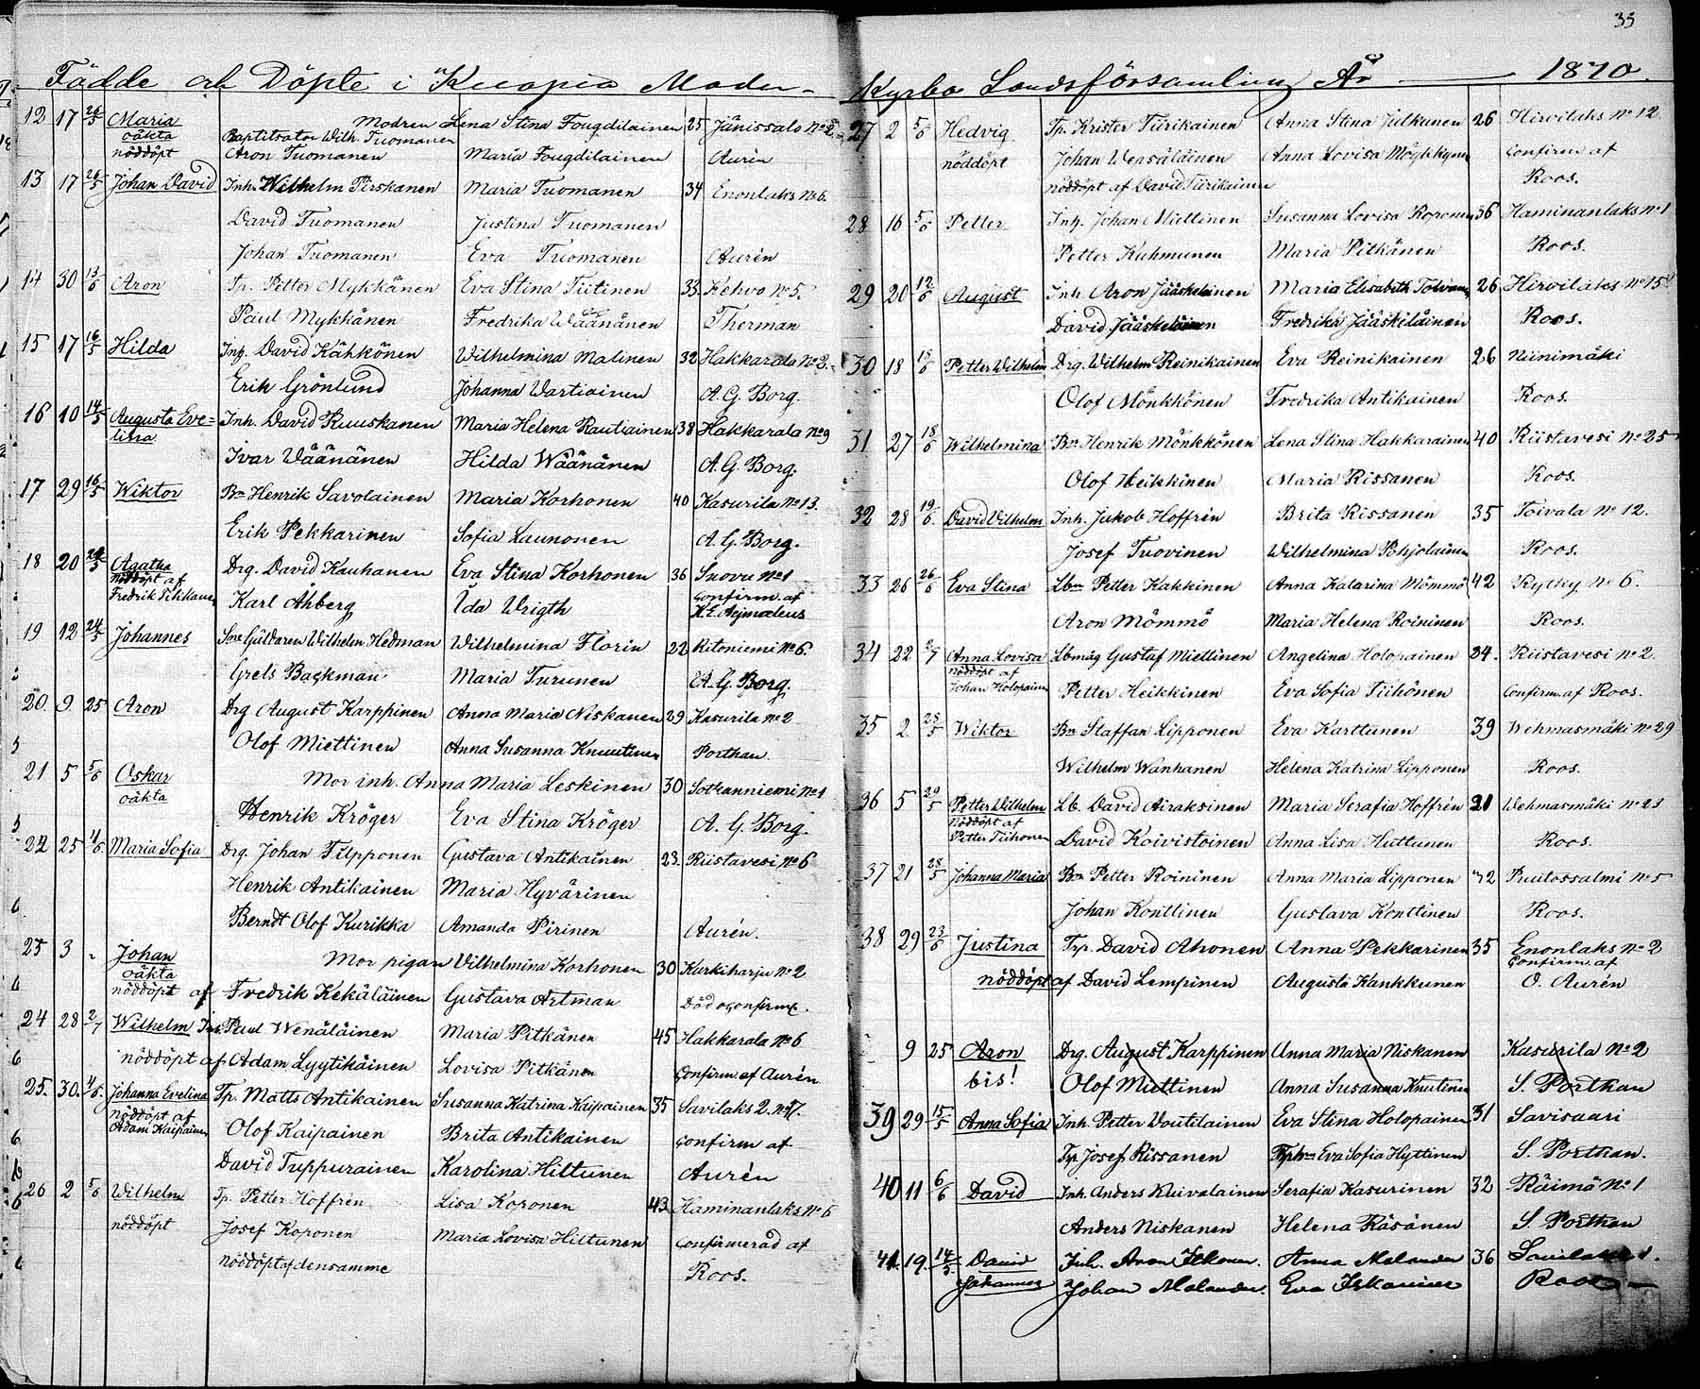 35
Födde och Döpte i Kuopio Moder-
12 17 24/5 Maria Modren Lena Stina Fougdilainen 25 Jänissalo No 2
oäkta Baptitsator Wilh. Tuomanen
nöddöpt Aron Tuomanen Maria Fougdilainen Aurén
13 17 26/5 Johan David Inhs Wilhelm Pirskanen Maria Tuomanen 34 Enonlaks No 6.
David Tuomanen Justina Tuomanen
Johan Tuomanen Eva Tuomanen Aurén
14 30 13/6 Aron Tp. Petter Mykkänen Eva Stina Tiitinen 33. Kehvo No 5.
Paul Mykkänen Fredrika Wäänänen Therman
15 17 16/5 Hilda Inh. David Kähkönen Wilhelmina Malinen 32 Hakkarala No 3.
Erik Grönlund Johanna Wartiainen A. G. Borg.
16 10 14/5 Augusta Eve= Inh. David Ruuskanen Maria Helena Rautiainen 38 Hakkarala No 9
lina
Ivar Wäänänen Hilda Wäänänen A. G. Borg.
17 29 16/5 Wiktor Bn Henrik Savolainen Maria Korhonen 40 Kasurila No 13.
Erik Pekkarinen Sofia Launonen A. G. Borg.
18 20 24/5 Agatha Drg. David Kauhanen Eva Stina Korhonen 36 No 1
Nöddöpt af confirm. af
Fredrik Karl Åhberg Ida Wrigth
19 12 24/5 Johannes Wilhelm Hedman Wilhelmina Florin 22 Ritoniemi No 6.
Grels Backman Maria Turunen A. G. Borg.
20. 9 25 Aron Drg August Karppinen Anna Maria Niskanen 29 Kasurila No 2
Olof Miettinen Anna Susanna Knuutinen Porthan.
21 5 5/6 Oskar Mor inh. Anna Maria Leskinen 30 Sotkanniemi No 1
oäkta
Henrik Kröger Eva Stina Kröger A. G. Borg.
22 25 4/6. Maria Sofia Drg. Johan Filpponen Gustava Antikainen 23. Riistavesi No 6
Henrik Antikainen Maria Hyvärinen
Berndt Olof Kurikka Amanda Pirinen Aurén.
23 3 Johan Mor pigan Wilhelmina Korhonen 30 Kurkiharju No 2
oäkta
nöddöpt af Fredrik Kekäläinen Gustava Artman
24 28 2/7 Wilhelm Paul Wenäläinen Maria Pitkänen 45 Hakkarala No 6
nöddöpt af Adam Lyytikäinen Lovisa Pitkänen Confirm. af Aurén
25. 30. 4/6. Johanna Evelina Tp. Matts Antikainen Susanna Katrina Kaipainen 35 Savilaks 2. No 17.
nöddöpt af
Adam Kaipainen Olof Kaipainen Brita Antikainen confirm af
David Tuppurainen Karolina Hiltunen Aurén
26 2 5/6 Wilhelm Tp. Petter Hoffrén Lisa Koponen 43 Haminanlaks No 6
nöddöpt Josef Koponen Maria Lovisa Hiltunen confirmerad af
nöddöpt af densamme Roos.
Kyrko Landsförsamling År 1870.
27 2 5/6 Hedvig Tp. Krister Tiirikainen Anna Stina Julkunen 26 Hirvilaks No 12.
nöddöpt Johan Wensäläinen Anna Lovisa Confirm af
nöddöpt af David Tiirikainen Roos.
28 16 5/6 Petter Inh. Johan Miettinen Susanna Lovisa Koponen 36 Haminanlaks No 1
Petter Kuhmunen Maria Pitkänen Roos.
29 20 12/6 August Inh. Aron Jääskeläinen Maria Elisabeth Toivanen 26 Hirvilaks No 15
David Jääskeläinen Fredrika Jääskeläinen Roos.
30 18 18/6 Petter Wilhelm Drg. Wilhelm Reinikainen Eva Reinikainen 26 Niinimäki
Olof Mönkkönen Fredrika Antikainen Roos.
31 27 18/6 Wilhelmina Bn Henrik Mönkkönen Lena Stina Hakkarainen 40 Riistavesi No 25
Olof Heikkinen Maria Rissanen Roos.
32 28 19/6. David Vilhelm Inh. Jakob Hoffrén Brita Rissanen 35 Toivala No 12.
Josef Tuovinen Wilhelmina Pohjolainen Roos.
33 26 26/6 Eva Stina Lbm Petter Kakkinen Anna Katarina Mömmö 42 Rytky No 6.
Aron Mömmö Maria Helena Roininen Roos.
34 22 2/7 Anna Lovisa Lbmåg Gustaf Miettinen Angelina Holopainen 24. Riistavesi No 2
nöddöpt af
Johan Holopainen Petter Heikkinen Eva Sofia Tiihonen Confirm. af Roos.
35 2 25/5 Wiktor Bn Staffan Lipponen Eva Karttunen 39 Wehmasmäki No 29
Wilhelm Wanhanen Helena Katrina Lipponen Roos.
36 5 29/5 Petter Wilhelm Lb. David Airaksinen Maria Serafia Hoffrén 21 Wehmasmäki No 23
Nöddöpt af
Petter Tiihonen David Koivistoinen Anna Lisa Huttunen Roos.
37 21 28/5 Johanna Maria Bn Petter Roininen Anna Maria Lipponen 42 Puutossalmi No 5
Johan Konttinen Gustava Konttinen Roos.
38 29 23/6 Justina Trp. David Ahonen Anna Pekkarinen 35 Enonlaks No 2
Confirm. af
nöddöpt af David Lempinen Augusta Kankkunen O. Aurén
9 25 Aron Drg. August Karppinen Anna Maria Niskanen Kasurila No 2
bis! Olof Miettinen Anna Susanna Knutinen S. Porthan
39 29 15/5 Anna Sofia Inh. Petter Voutilainen Eva Stina Holopainen 31 Savisaari
Tp. Josef Rissanen Eva Sofia Hyttinen S. Porthan.
40 11 6/6 David Inh. Anders Kuivalainen Serafia Kasurinen 32 Räimä No 1
Anders Niskanen Helena Räsänen S. Porthan
41. 19. 14/5. David Inh. Aron Anna Malander 36
Johannes Johan Malander. Eva Roos